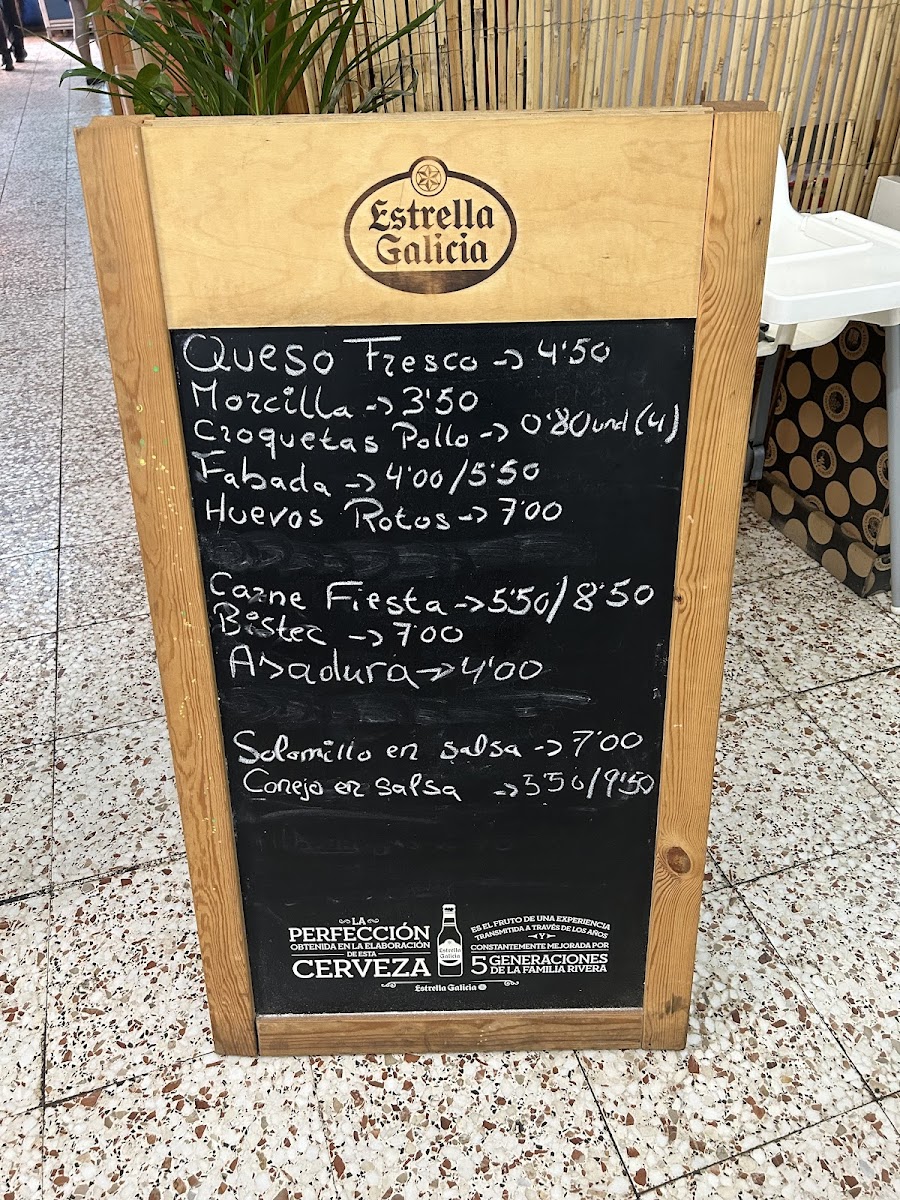 Estrella
Galicia
Queso Fresco -> 4'50
Morcilla -> 3'50
Croquetas Pollo -> 0'80 und (4)
Fabada -> 4'00/5'50
Huevos Rotos -> 7'00
Carne Fiesta -> 5'50/8'50
Bistec -> 7'00
Asadura -> 4'00
Solomillo en salsa -> 7'00
Conejo en salsa -> 5'50/9'50
LA
PERFECCIÓN
OBTENIDA EN LA ELABORACIÓN
DE ESTA
CERVEZA
Estrella
Galicia
ES EL FRUTO DE UNA EXPERIENCIA
TRANSMITIDA A TRAVÉS DE LOS AÑOS
Y
CONSTANTEMENTE MEJORADA POR
5 GENERACIONES
DE LA FAMILIA RIVERA
Estrella Galicia